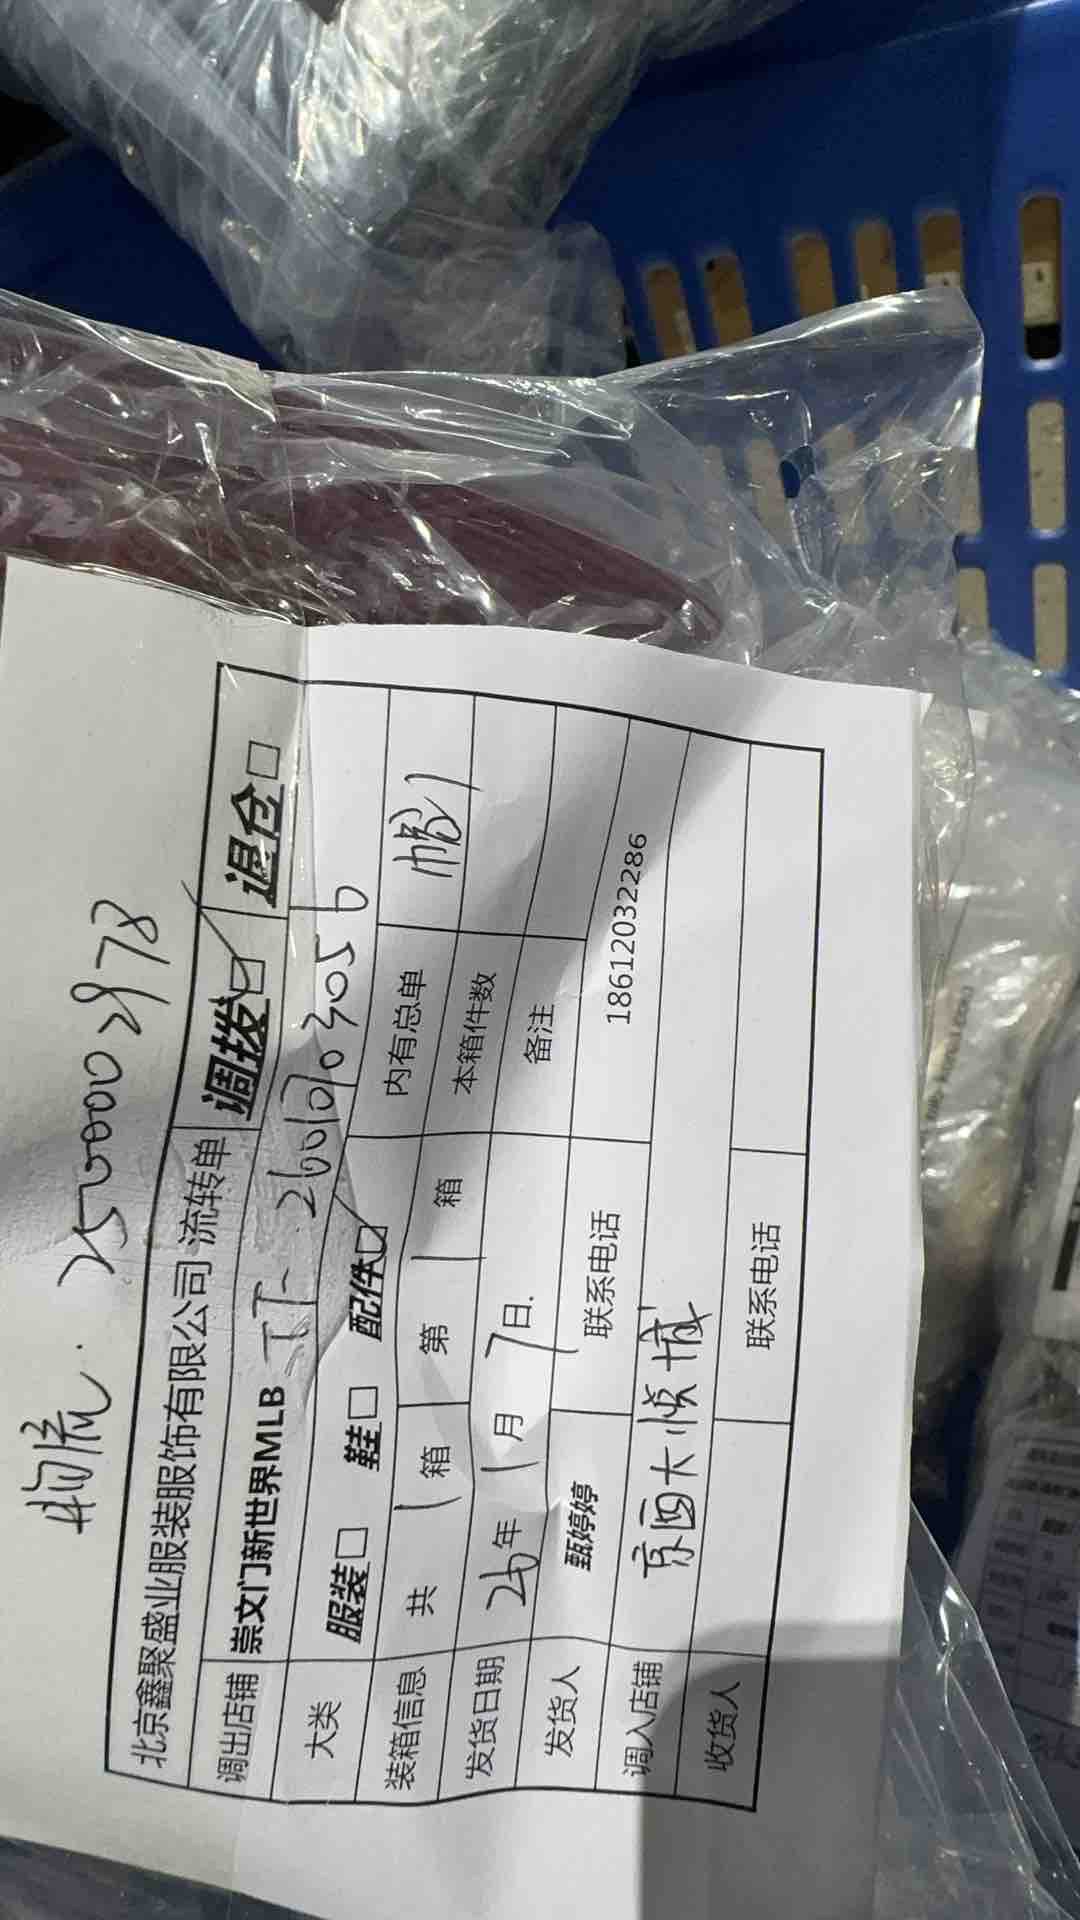 物流. 2500002978
北京鑫聚盛业服装服饰有限公司 流转单 调拨☑ 退仓□
调出店铺 崇文门新世界MLB TT-26010703056
大类 服装□ 鞋□ 配件☑
装箱信息 共 1 箱 第 1 箱 内有总单 帽1
发货日期 26年 1月 7日. 本箱件数
发货人 甄婷婷 联系电话 备注
18612032286
调入店铺 京西大悦城
收货人 联系电话